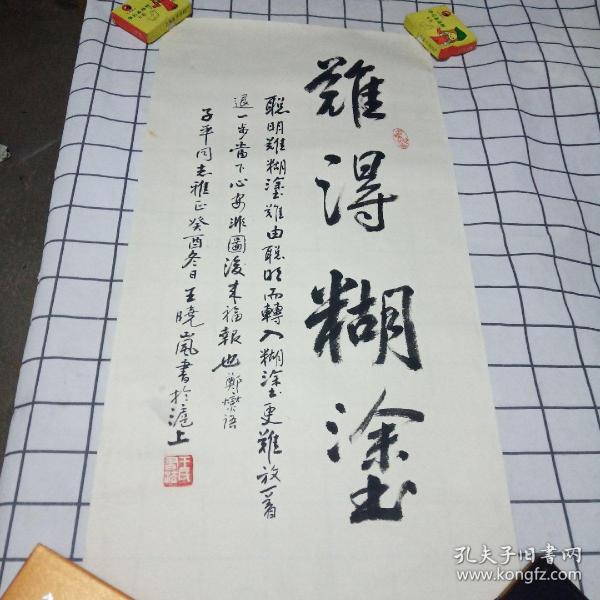 難得糊塗
聰明難糊塗難由聰明而轉入糊塗更難放一着
退一步當下心安非圖後來福報也鄭燮語
子平同志雅正癸酉冬日王曉嵐書於滬上
孔夫子旧书网
www.kongfz.com